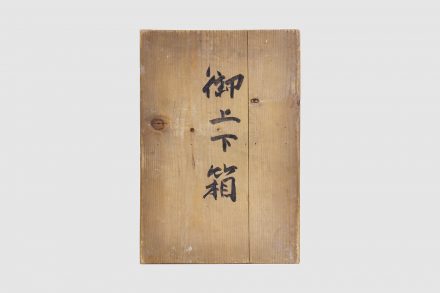 御上下箱